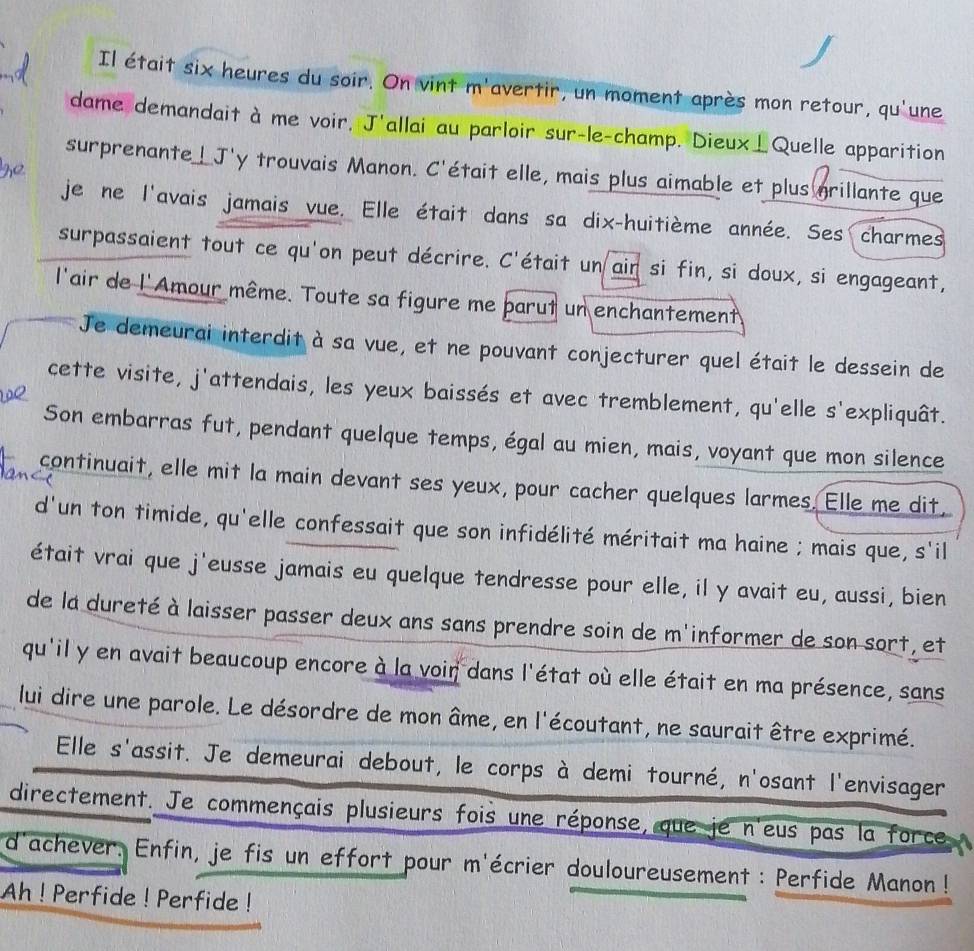 Il était six heures du soir. On vint m'avertir, un moment après mon retour, qu'une
dame demandait à me voir. J'allai au parloir sur-le-champ. Dieux ! Quelle apparition
surprenante ! J'y trouvais Manon. C'était elle, mais plus aimable et plus brillante que
je ne l'avais jamais vue. Elle était dans sa dix-huitième année. Ses charmes
surpassaient tout ce qu'on peut décrire. C'était un air si fin, si doux, si engageant,
l'air de l'Amour même. Toute sa figure me parut un enchantement
Je demeurai interdit à sa vue, et ne pouvant conjecturer quel était le dessein de
cette visite, j'attendais, les yeux baissés et avec tremblement, qu'elle s'expliquât.
Son embarras fut, pendant quelque temps, égal au mien, mais, voyant que mon silence
continuait, elle mit la main devant ses yeux, pour cacher quelques larmes. Elle me dit,
d'un ton timide, qu'elle confessait que son infidélité méritait ma haine ; mais que, s'il
était vrai que j'eusse jamais eu quelque tendresse pour elle, il y avait eu, aussi, bien
de la dureté à laisser passer deux ans sans prendre soin de m'informer de son sort, et
qu'il y en avait beaucoup encore à la voir dans l'état où elle était en ma présence, sans
lui dire une parole. Le désordre de mon âme, en l'écoutant, ne saurait être exprimé.
Elle s'assit. Je demeurai debout, le corps à demi tourné, n'osant l'envisager
directement. Je commençais plusieurs fois une réponse, que je n'eus pas la force
d'achever. Enfin, je fis un effort pour m'écrier douloureusement : Perfide Manon !
Ah ! Perfide ! Perfide !